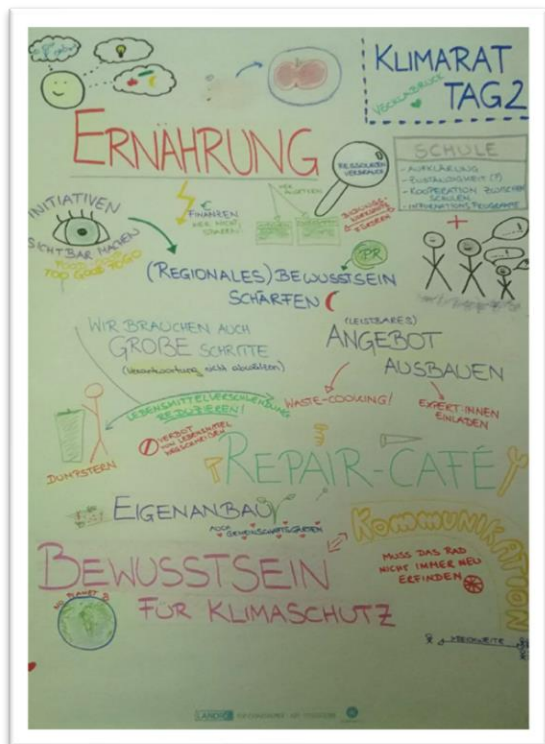 KLIMARAT
VÖCKLABRUCK
TAG 2
ERNÄHRUNG
RESSOURCEN
VERBRAUCH
SCHULE
- AUFKLÄRUNG
- ZUSTÄNDIGKEIT (?)
- KOOPERATION ZWISCHEN
SCHULEN
- INFORMATIONSPROGRAMME
+
INITIATIVEN
SICHTBAR MACHEN
TOO GOOD TOGO
€
FINANZEN
HER NICHT
PR
(REGIONALES) BEWUSSTSEIN
SCHÄRFEN
WIR BRAUCHEN AUCH
GROßE SCHRITTE
(Verantwortung nicht abwälzen)
(LEISTBARES)
ANGEBOT
AUSBAUEN
LEBENSMITTELVERSCHWENDUNG
REDUZIEREN!
WASTE-COOKING!
EXPERT:INNEN
EINLADEN
VERBOT
VON LEBENSMITTEL
WEGSCHMEIßEN
DUMPSTERN
REPAIR-CAFÉ
EIGENANBAU
AUCH
GEMEINSCHAFTSGÄRTEN
KOMMUNIKATION
MUSS DAS RAD
NICHT IMMER NEU
ERFINDEN
BEWUSSTSEIN
FÜR KLIMASCHUTZ
NO PLANET B